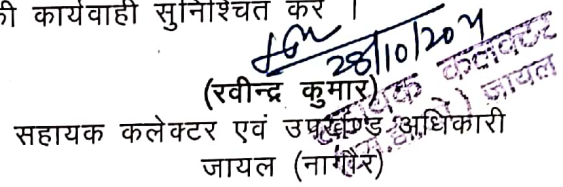 की कार्यवाही सुनिश्चित करें ।
28/10/204
(रवीन्द्र कुमार)
सहायक कलेक्टर एवं उपखण्ड अधिकारी
जायल (नागौर)
कलक्टर
जायल